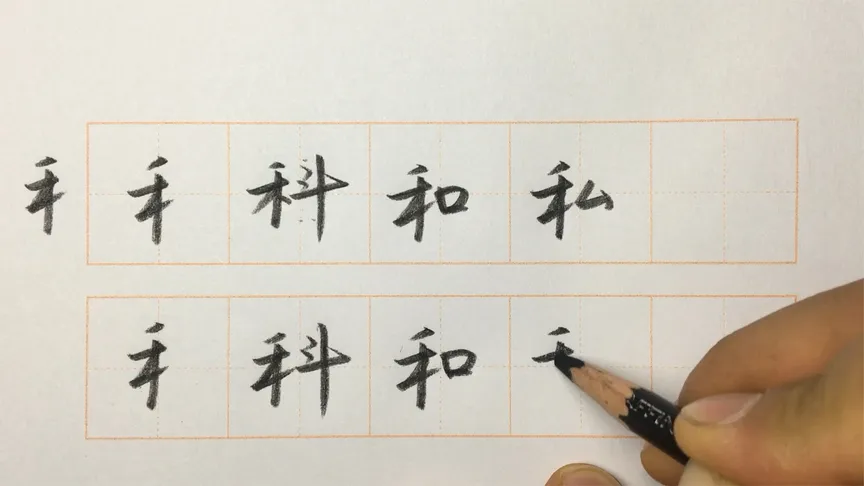 禾 禾 科 和 私
禾 科 和